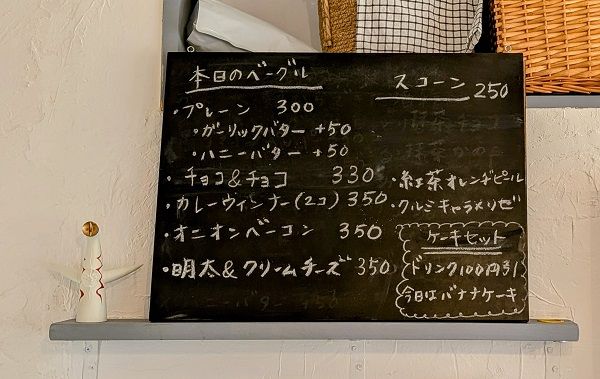 本日のベーグル
・プレーン 300
・ガーリックバター +50
・ハニーバター +50
・チョコ&チョコ 330
・カレーウィンナー(2コ) 350
・オニオンベーコン 350
・明太&クリームチーズ 350
スコーン 250
・紅茶オレンヂピール
・クルミキャラメリゼ
ケーキセット
ドリンク100円引
今日はバナナケーキ